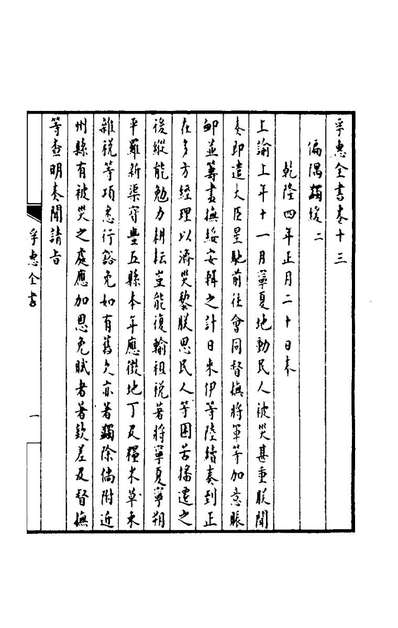 孚惠全書卷十三
偏隅蠲緩二
乾隆四年正月二十日奉
上諭上年十一月寧夏地動民人被災甚重朕聞
奏即遣大臣星馳前往會同督撫將軍等加意賑
卹並籌畫撫綏安輯之計日來伊等陸續奏到正
在多方經理以濟災黎朕思民人等困苦播遷之
後縱能勉力耕耘豈能復輸租稅著將寧夏寧朔
平羅新渠寶豐五縣本年應徵地丁及糧米草束
雜稅等項悉行豁免如有舊欠亦著蠲除倘附近
州縣有被災之處應加恩免賦者著欽差及督撫
等查明奏聞請旨
孚惠全書
一